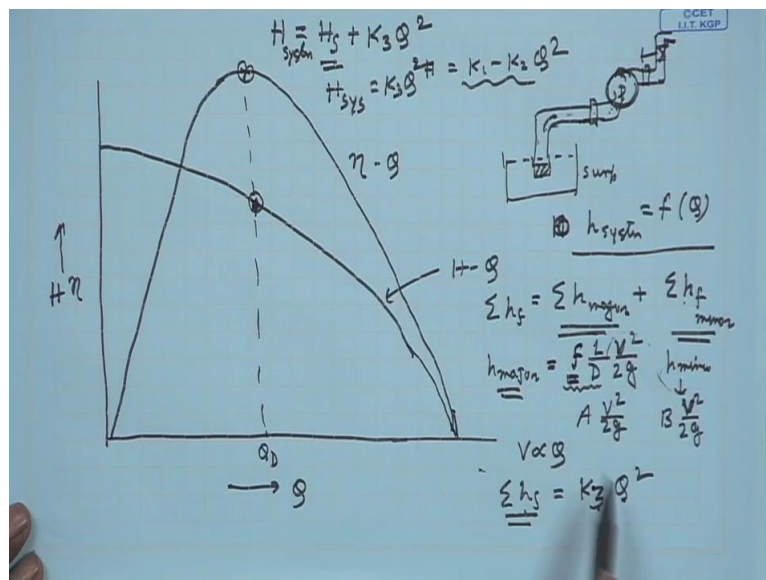 ©CET
I.I.T. KGP
H system = Hs + K3 Q²
H sys = K3 Q²
H = K1 - K2 Q²
η - Q
sump
h system = f (Q)
H - Q
H η
Σ hf = Σ h major + Σ hf minor
h major = f L/D V²/2g
h minor
A V²/2g
B V²/2g
V ∝ Q
QD
Q
Σ hf = K3 Q²